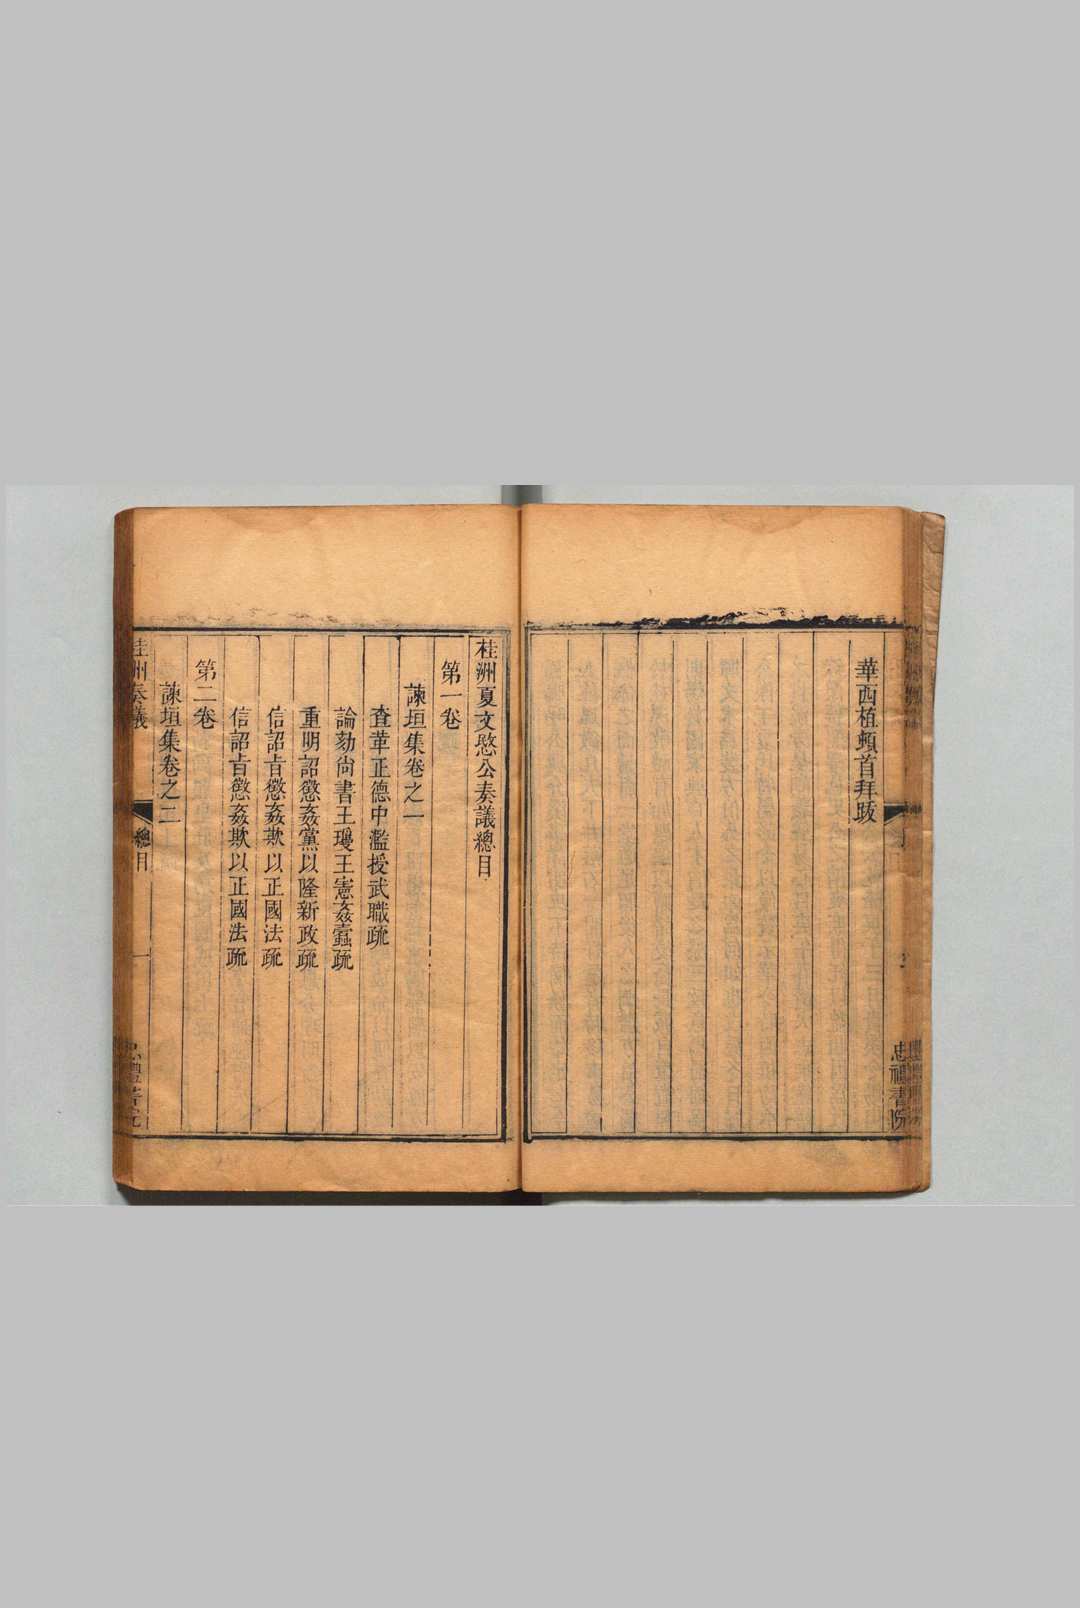 華西植頓首拜跋
忠禮書院
桂洲夏文愍公奏議總目
第一卷
諫垣集卷之一
查革正德中濫授武職疏
論劾尚書王瓊王憲姦蠹疏
重明詔懲姦黨以隆新政疏
信詔旨懲姦欺以正國法疏
信詔旨懲姦欺以正國法疏
第二卷
諫垣集卷之二
桂洲奏議
總目
一
忠禮書院